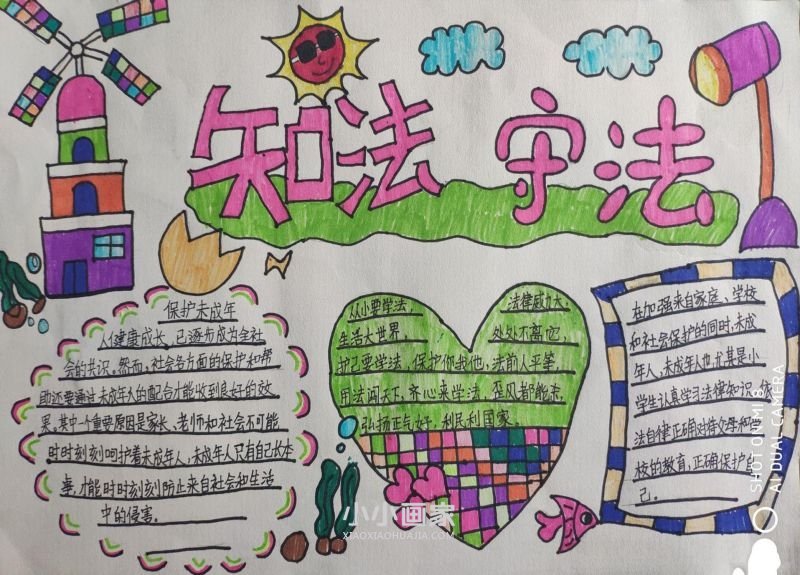 知法 守法
保护未成年
人健康成长，已逐步成为全社
会的共识，然而，社会各方面的保护和帮
助还要通过未成年人的配合才能收到良好的效
果，其中一个重要原因是家长、老师和社会不可能
时时刻刻呵护着未成年人，未成年人只有自己长本
事，才能时时刻刻防止来自社会和生活
中的侵害。
从小要学法，
生活大世界，
法律威力大，
处处不离它，
护己要学法，保护你我他，法前人平等，
用法闯天下，齐心来学法，歪风都能杰，
弘扬正气好，利民利国家。
在加强来自家庭、学校
和社会保护的同时，未成
年人，未成年人也尤其是小
学生认真学习法律知识，依
法自律，正确对待父母和学
校的教育，正确保护自
己。
小小画家
XIAOXIAOHUAJIA.COM
SHOT ON MI 8
AI DUAL CAMERA